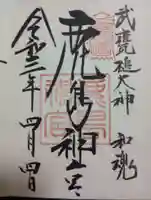 武甕槌大神　和魂
鹿島神宮
令和二年　四月四日